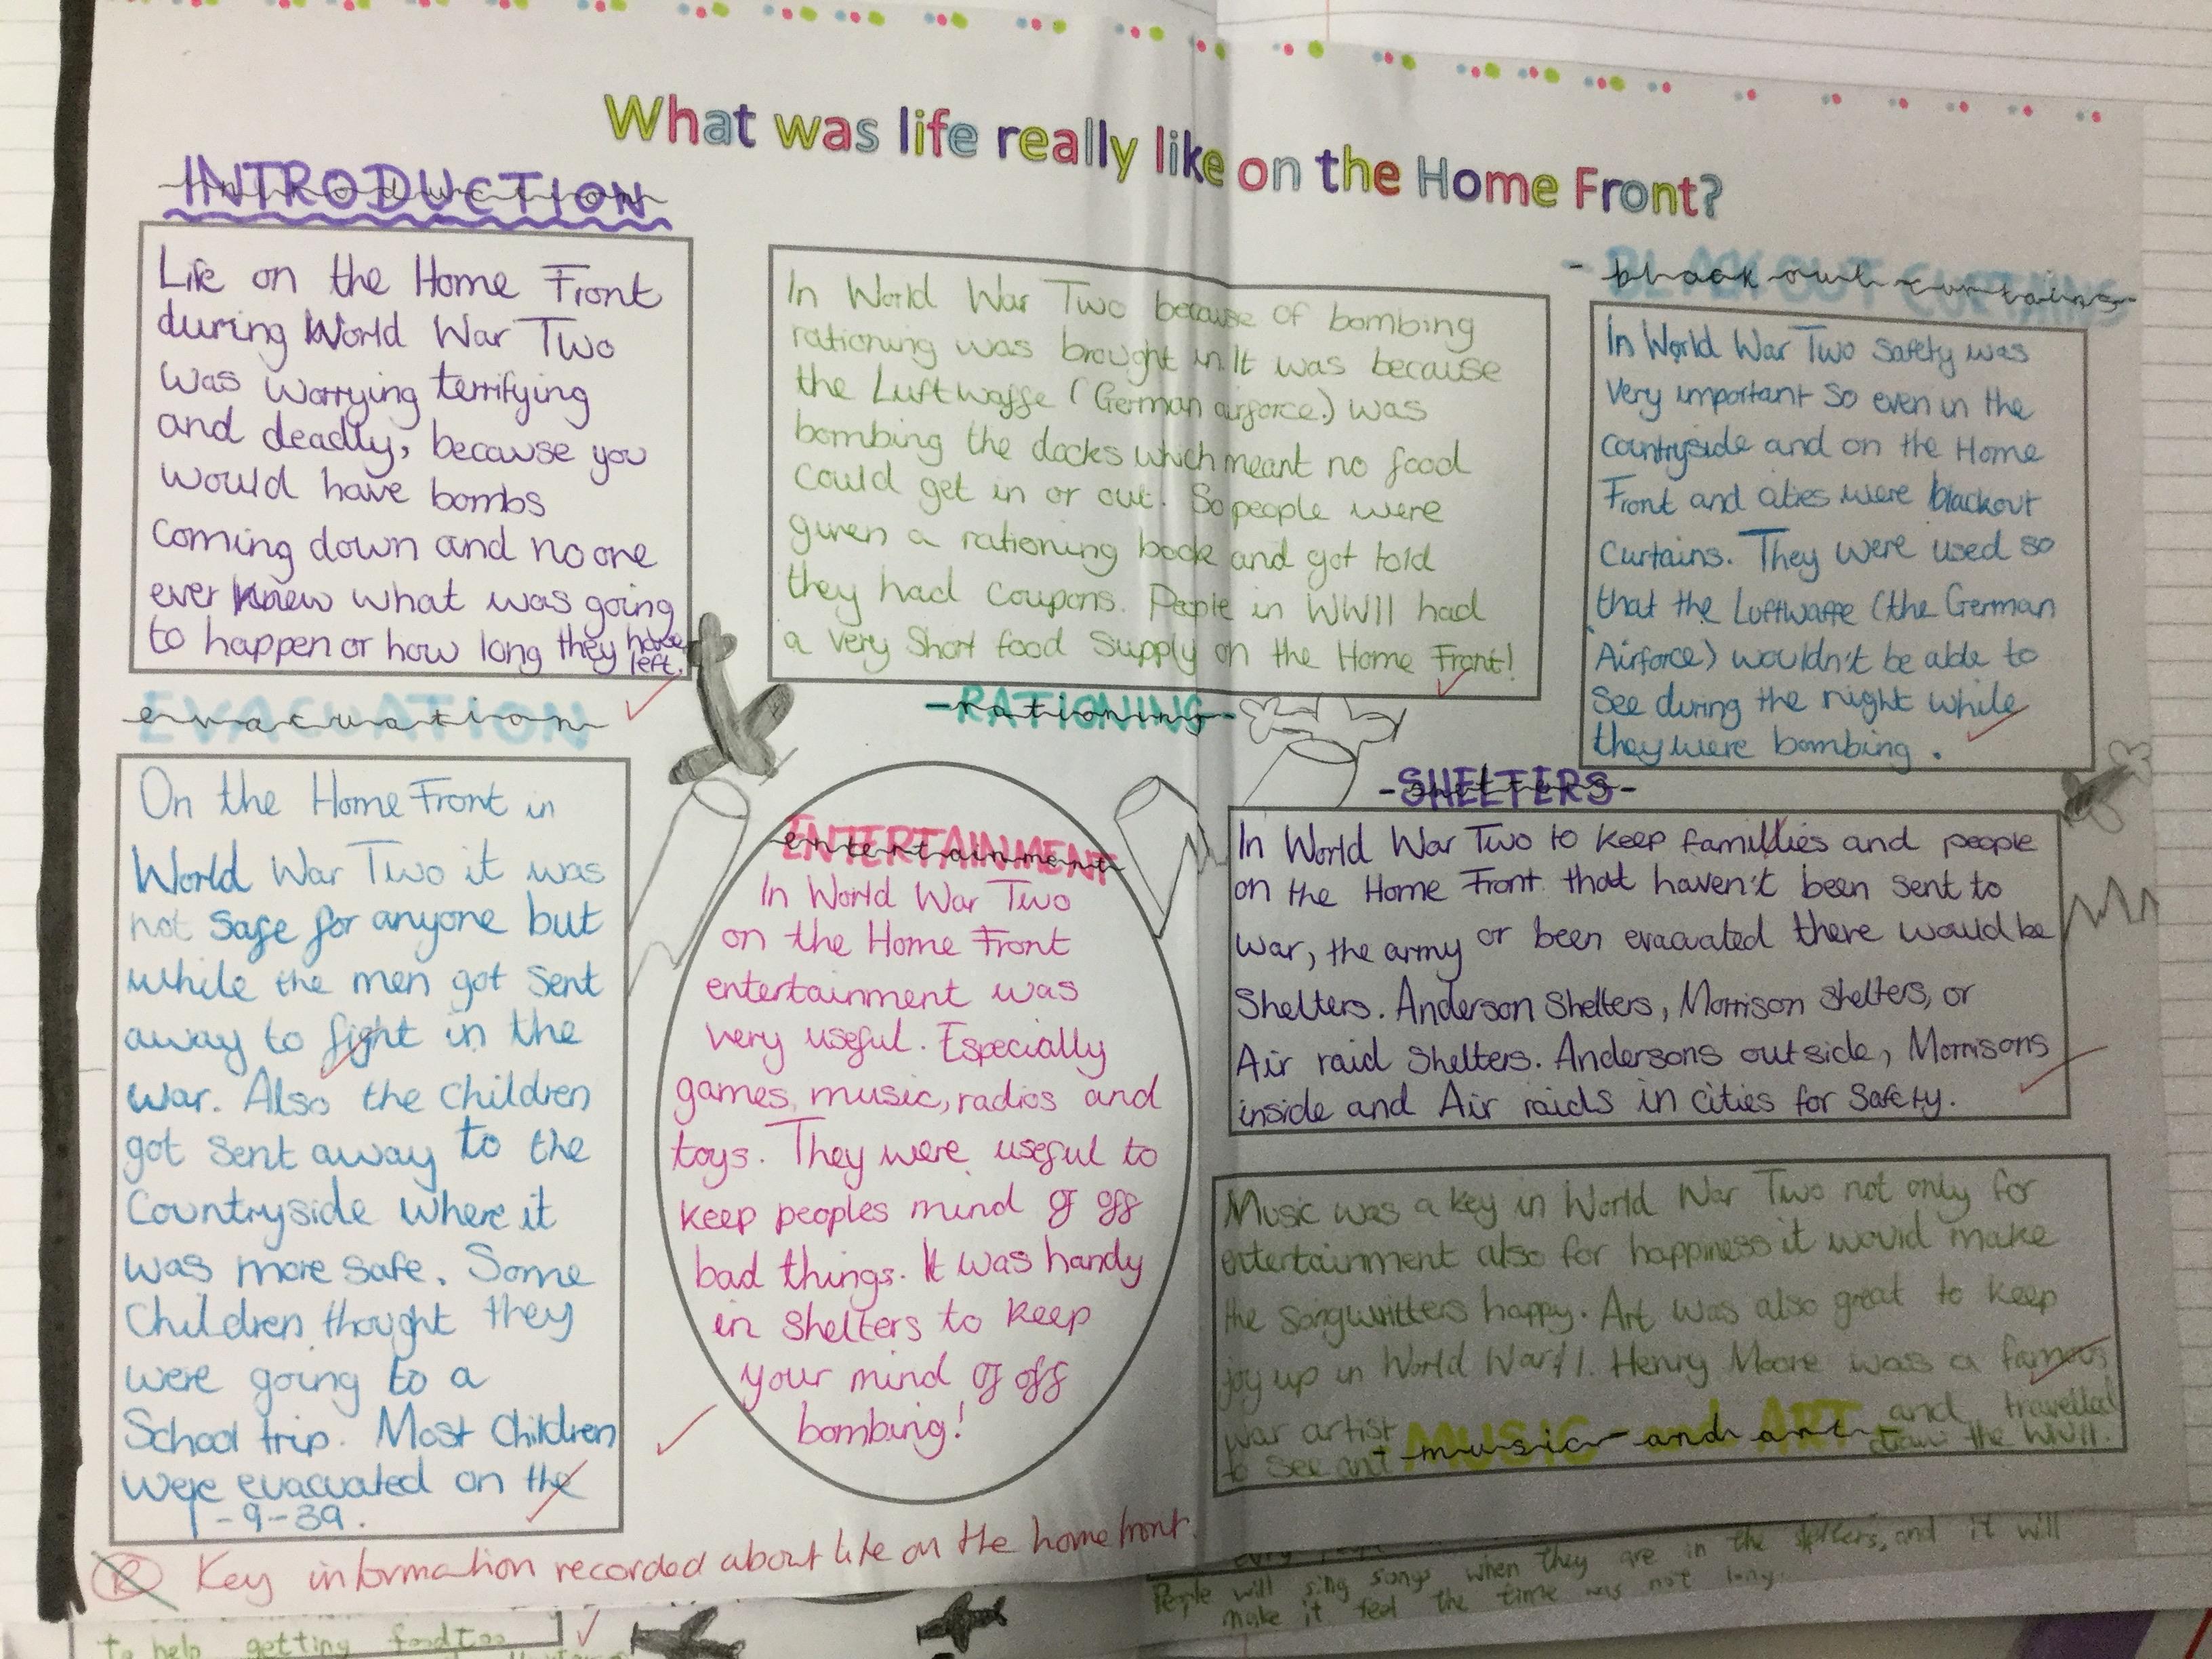 What was life really like on the Home Front?
INTRODUCTION
Life on the Home Front
during World War Two
was worrying terrifying
and deadly, because you
would have bombs
coming down and no one
ever knew what was going
to happen or how long they have
left.
EVACUATION
On the Home Front in
World War Two it was
not safe for anyone but
while the men got sent
away to fight in the
war. Also the children
got sent away to the
Countryside where it
was more safe. Some
Children thought they
were going to a
School trip. Most Children
were evacuated on the
1-9-39.
In World War Two because of bombing
rationing was brought in. It was because
the Luftwaffe (German airforce.) was
bombing the docks which meant no food
could get in or out. So people were
given a rationing book and got told
they had coupons. People in WWII had
a very short food supply on the Home Front!
-RATIONING-
ENTERTAINMENT
In World War Two
on the Home Front
entertainment was
very useful. Especially
games, music, radios and
toys. They were useful to
keep peoples mind of off
bad things. It was handy
in shelters to keep
your mind of off
bombing!
- BLACKOUT CURTAINS
In World War Two safety was
very important so even in the
countryside and on the Home
Front and cities were blackout
curtains. They were used so
that the Luftwaffe (the German
Airforce) wouldn't be able to
see during the night while
they were bombing.
-SHELTERS-
In World War Two to keep famillies and people
on the Home Front that haven't been sent to
war, the army or been evacuated there would be
Shelters. Anderson Shelters, Morrison shelters, or
Air raid shelters. Andersons outside, Morrisons
inside and Air raids in cities for safety.
Music was a key in World War Two not only for
entertainment also for happiness it would make
the songwritters happy. Art was also great to keep
joy up in World War 11. Henry Moore was a famous
war artist and travelled
to see and draw the WWII.
MUSIC and ART
Key information recorded about life on the home front.
People will sing songs when they are in the and it will
make it feel the time was not long.
to help getting food too